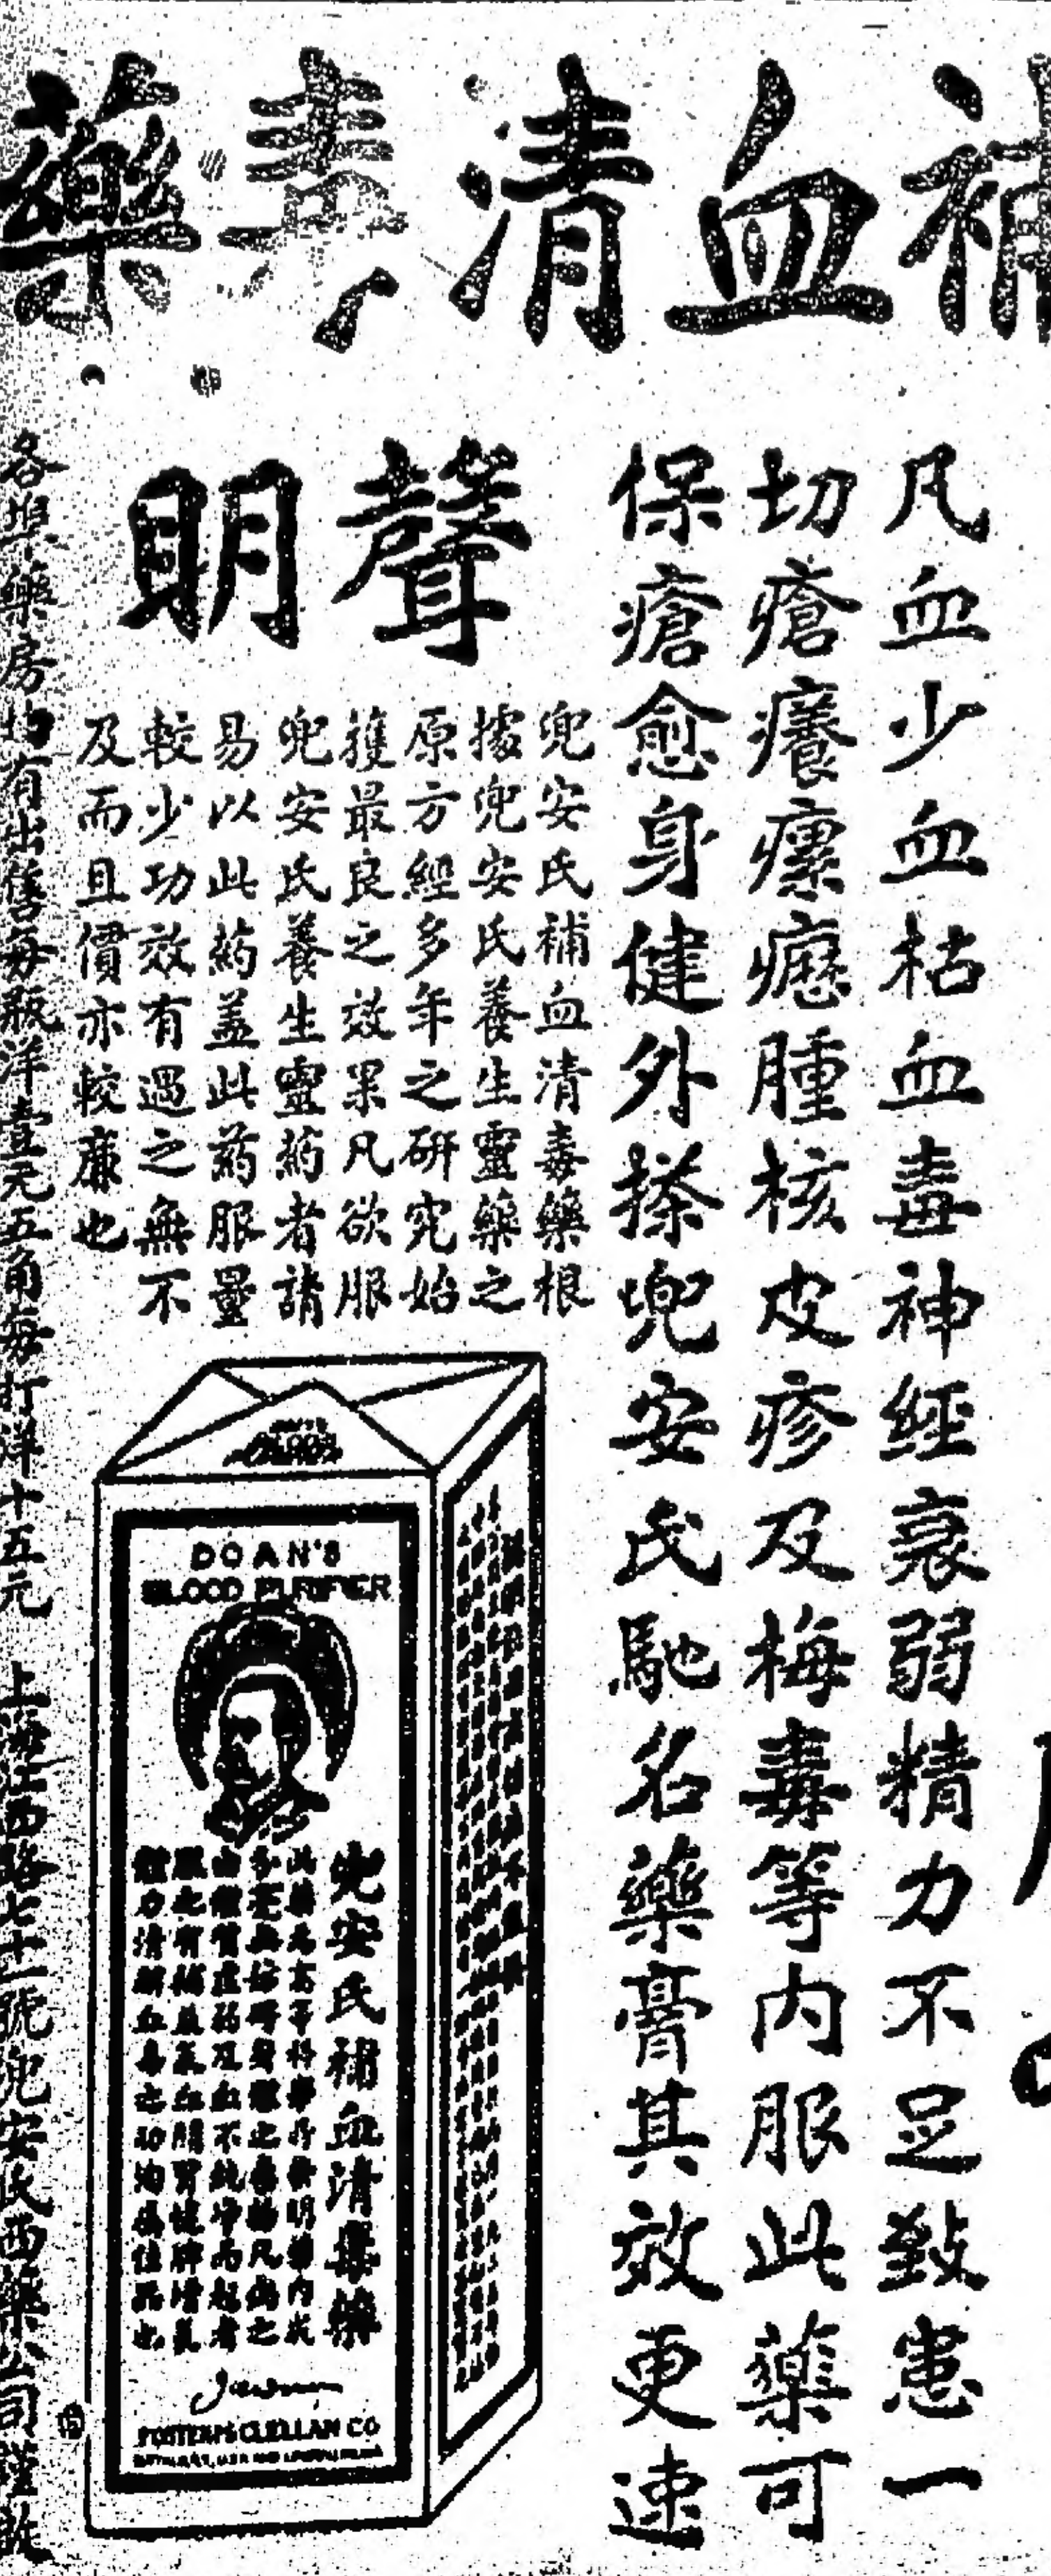 補血清毒藥
凡血少血枯血毒神經衰弱精力不足致患一
切瘡癢瘰癧腫核皮疹及梅毒等內服此藥可
保瘡愈身健外搽兜安氏馳名藥膏其效更速
聲明
兜安氏補血清毒藥根
據兜安氏養生靈藥之
原方經多年之研究始
獲最良之效果凡欲服
兜安氏養生靈葯者請
易以此葯盖此葯服量
較少功效有過之無不
及而且價亦較廉也
DOAN'S
BLOOD PURIFIER
兜安氏補血清毒藥
FOSTER McCLELLAN CO
各埠藥房均有出售每瓶洋壹元五角每打洋十五元 上海江西路七十一號兜安氏西藥公司謹啟